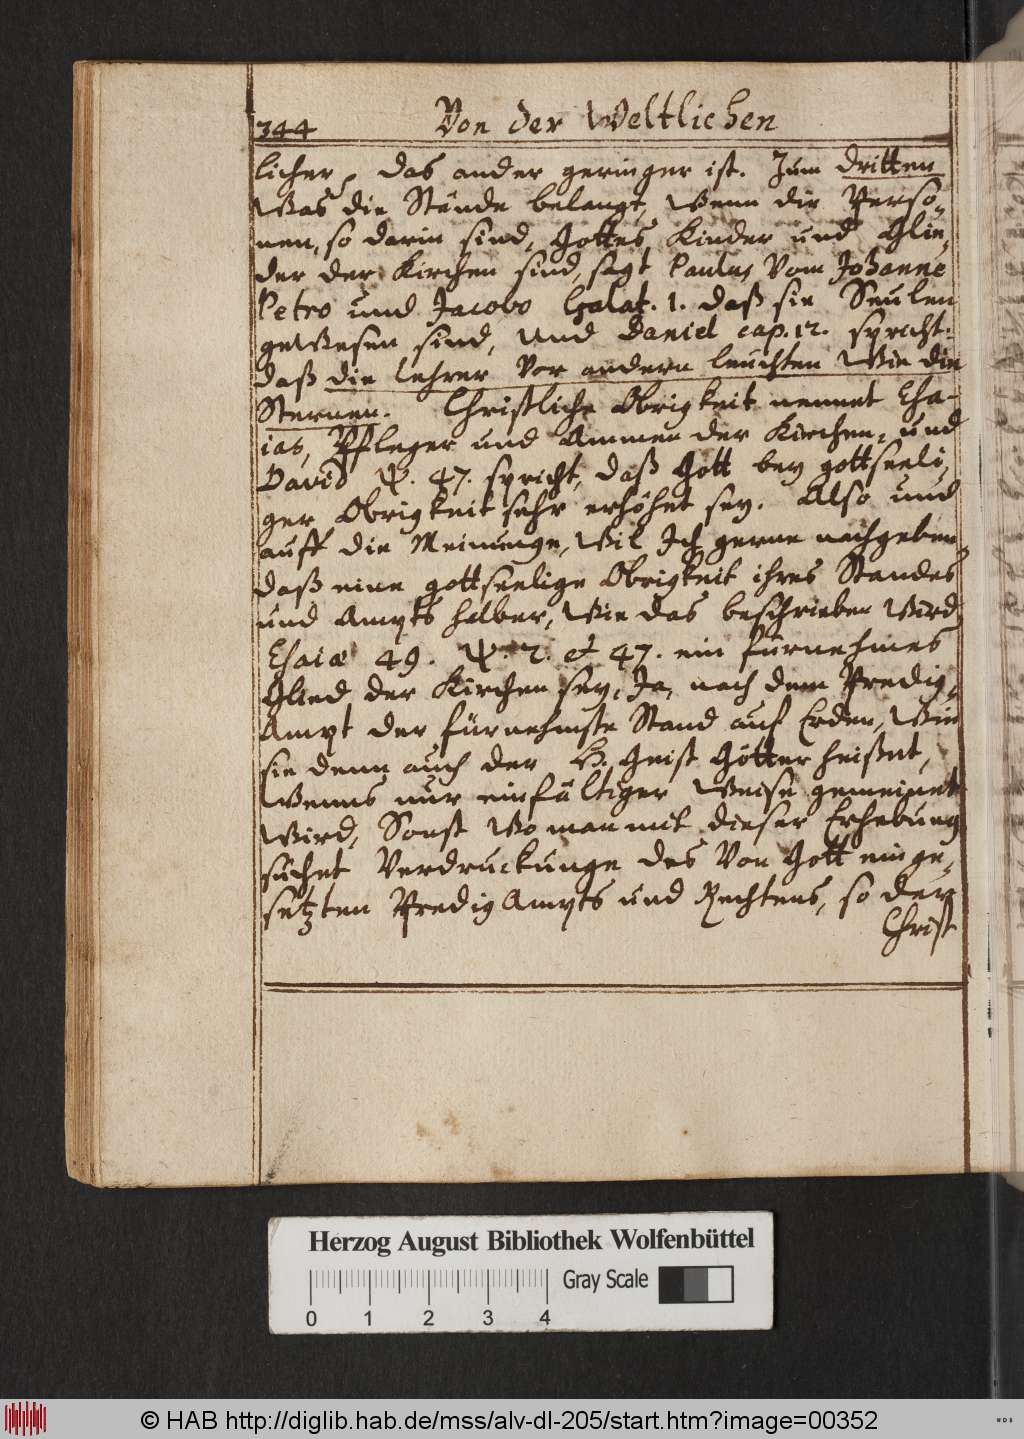 344
Von der Weltlichen
licher, das ander geringer ist. Zum dritten
Was die Stände belangt, Wenn die Perso-
nen, so darin sind, Gottes Kinder und Glie-
der der Kirchen sind, sagt Paulus Vom Johanne
Petro und Jacobo Galat. 1. daß sie Seulen
geWesen sind, Und Daniel cap. 12. spricht:
daß die Lehrer Vor andern leuchten Wie die
Sternen. Christliche Obrigkeit nennet Esa-
ias, Pfleger und Ammen der Kirchen, und
David Ψ. 47. spricht, daß Gott bey gottseeli-
ger Obrigkeit sehr erhöhet sey. Also und
auff die Meinunge, Wil Ich gerne nachgeben,
daß eine gottseelige Obrigkeit ihres Standes
und Ampts halber, Wie das beschrieben Wird
Esaiæ 49. Ψ. 2. et 47. ein fürnehmes
Glied der Kirchen sey, Ja, nach dem Predig-
Ampt der fürnehmste Stand auf Erden, Wie
sie denn auch der H. Geist Götter heißet,
Wenns nur einfältiger Weise gemeinet
Wird, Sonst Wo man mit dieser Erhebung
suchet Verdruckunge des Von Gott einge-
setzten Predig Ampts und Rechtens, so der
Christ
Herzog August Bibliothek Wolfenbüttel
Gray Scale
0 1 2 3 4
© HAB http://diglib.hab.de/mss/alv-dl-205/start.htm?image=00352